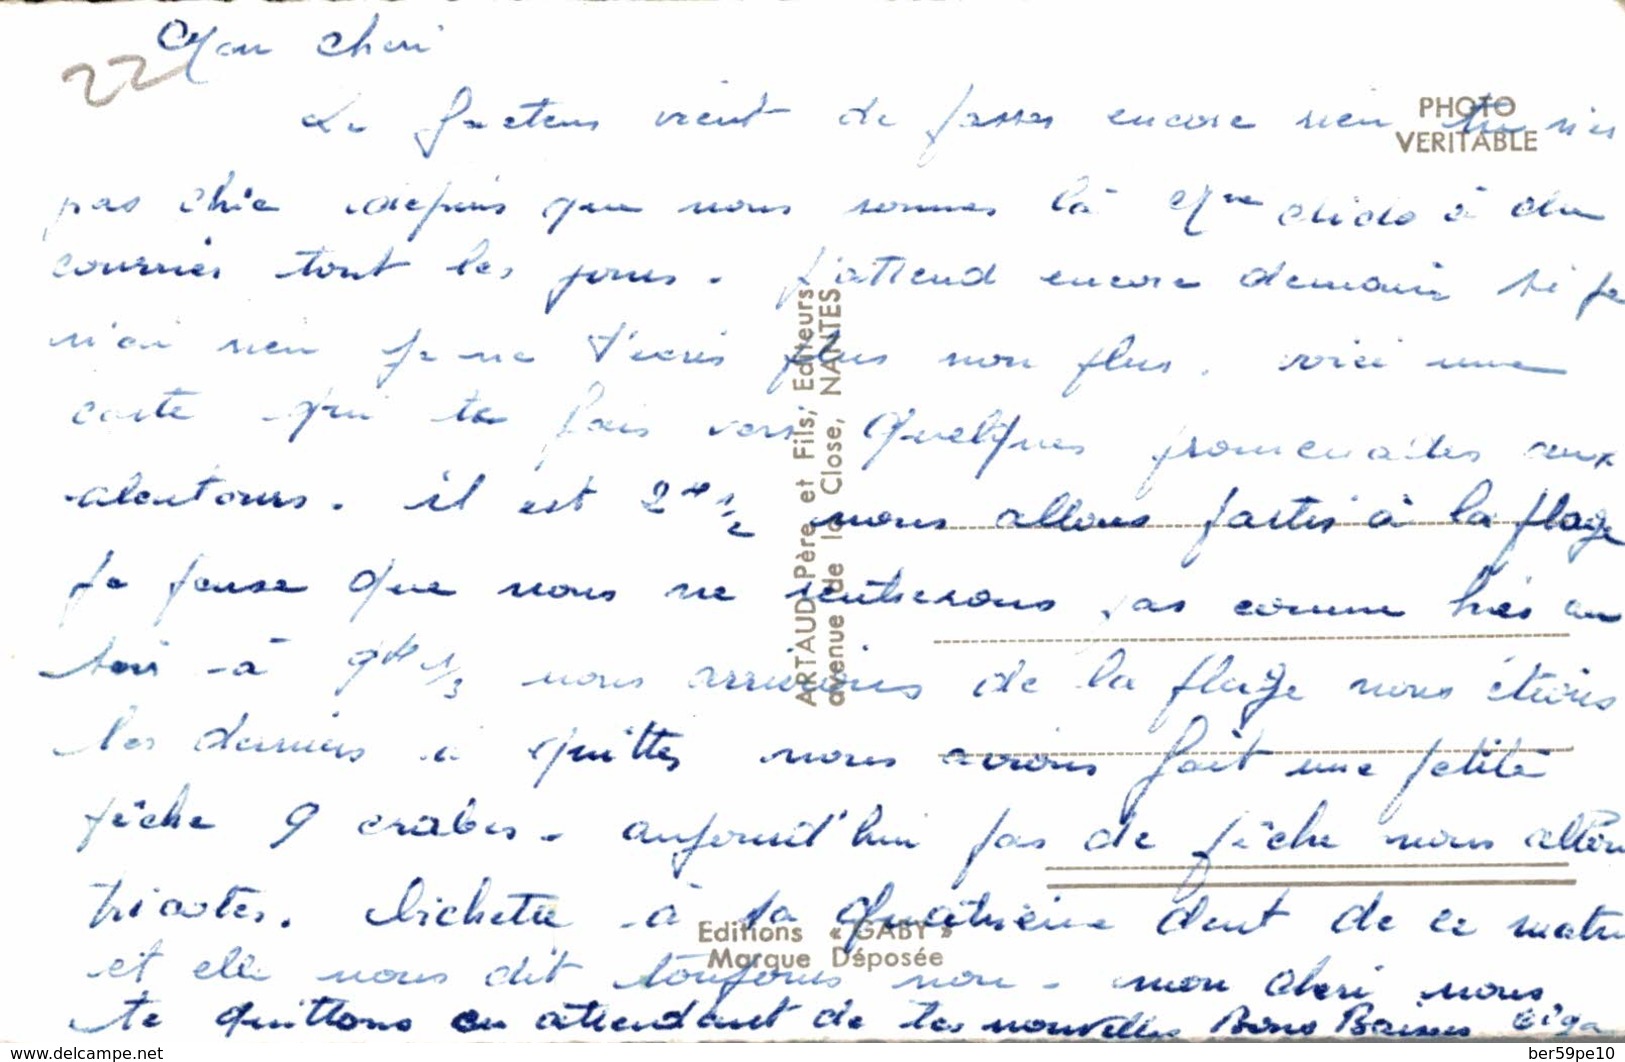 22
Mon cheri
Le facteur vient de passer encore rien tu n'es
PHOTO
VERITABLE
pas chic depuis que nous sommes là Mme dido à du
courrier tout les jours. J'attend encore demain si je
n'ai rien je ne t'ecris plus non plus. voici une
carte qui te fais voir quelques promenades aux
alentours. il est 2 H 1/2 nous allons partir à la plage
je pense que nous ne rentrerons pas comme hier au
soir à 9 H 1/3 nous arrivions de la plage nous étions
les derniers a quitter nous avions fait une petite
pêche 9 crabes. aujourd'hui pas de pêche nous allons
tricoter. bichette à sa quatrieme dent de ce matin
et elle nous dit toujours non. mon cheri nous
te quittons en attendant de tes nouvelles Bons Baisers
ARTAUD Père et Fils, Editeurs
avenue de la Close, NANTES
Editions « GABY »
Marque Déposée
delcampe.net
ber59pe10